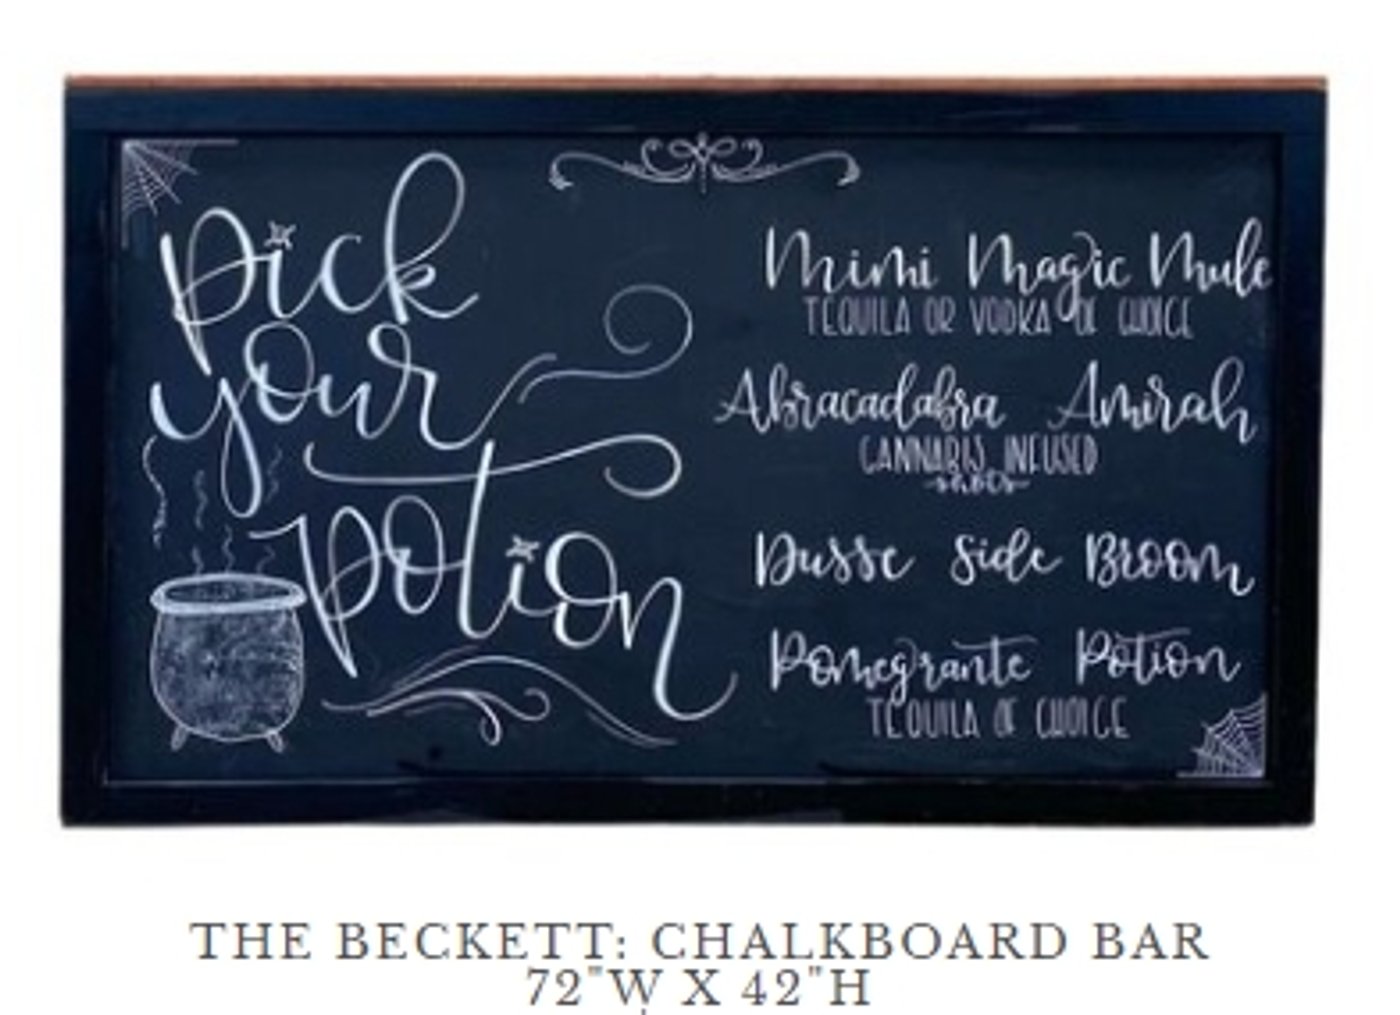 Pick
your
Potion
Mimi Magic Mule
TEQUILA OR VODKA OF CHOICE
Abracadabra Amirah
CANNABIS INFUSED
shots
Dusse Side Broom
Pomegrante Potion
TEQUILA OF CHOICE
THE BECKETT: CHALKBOARD BAR
72"W X 42"H